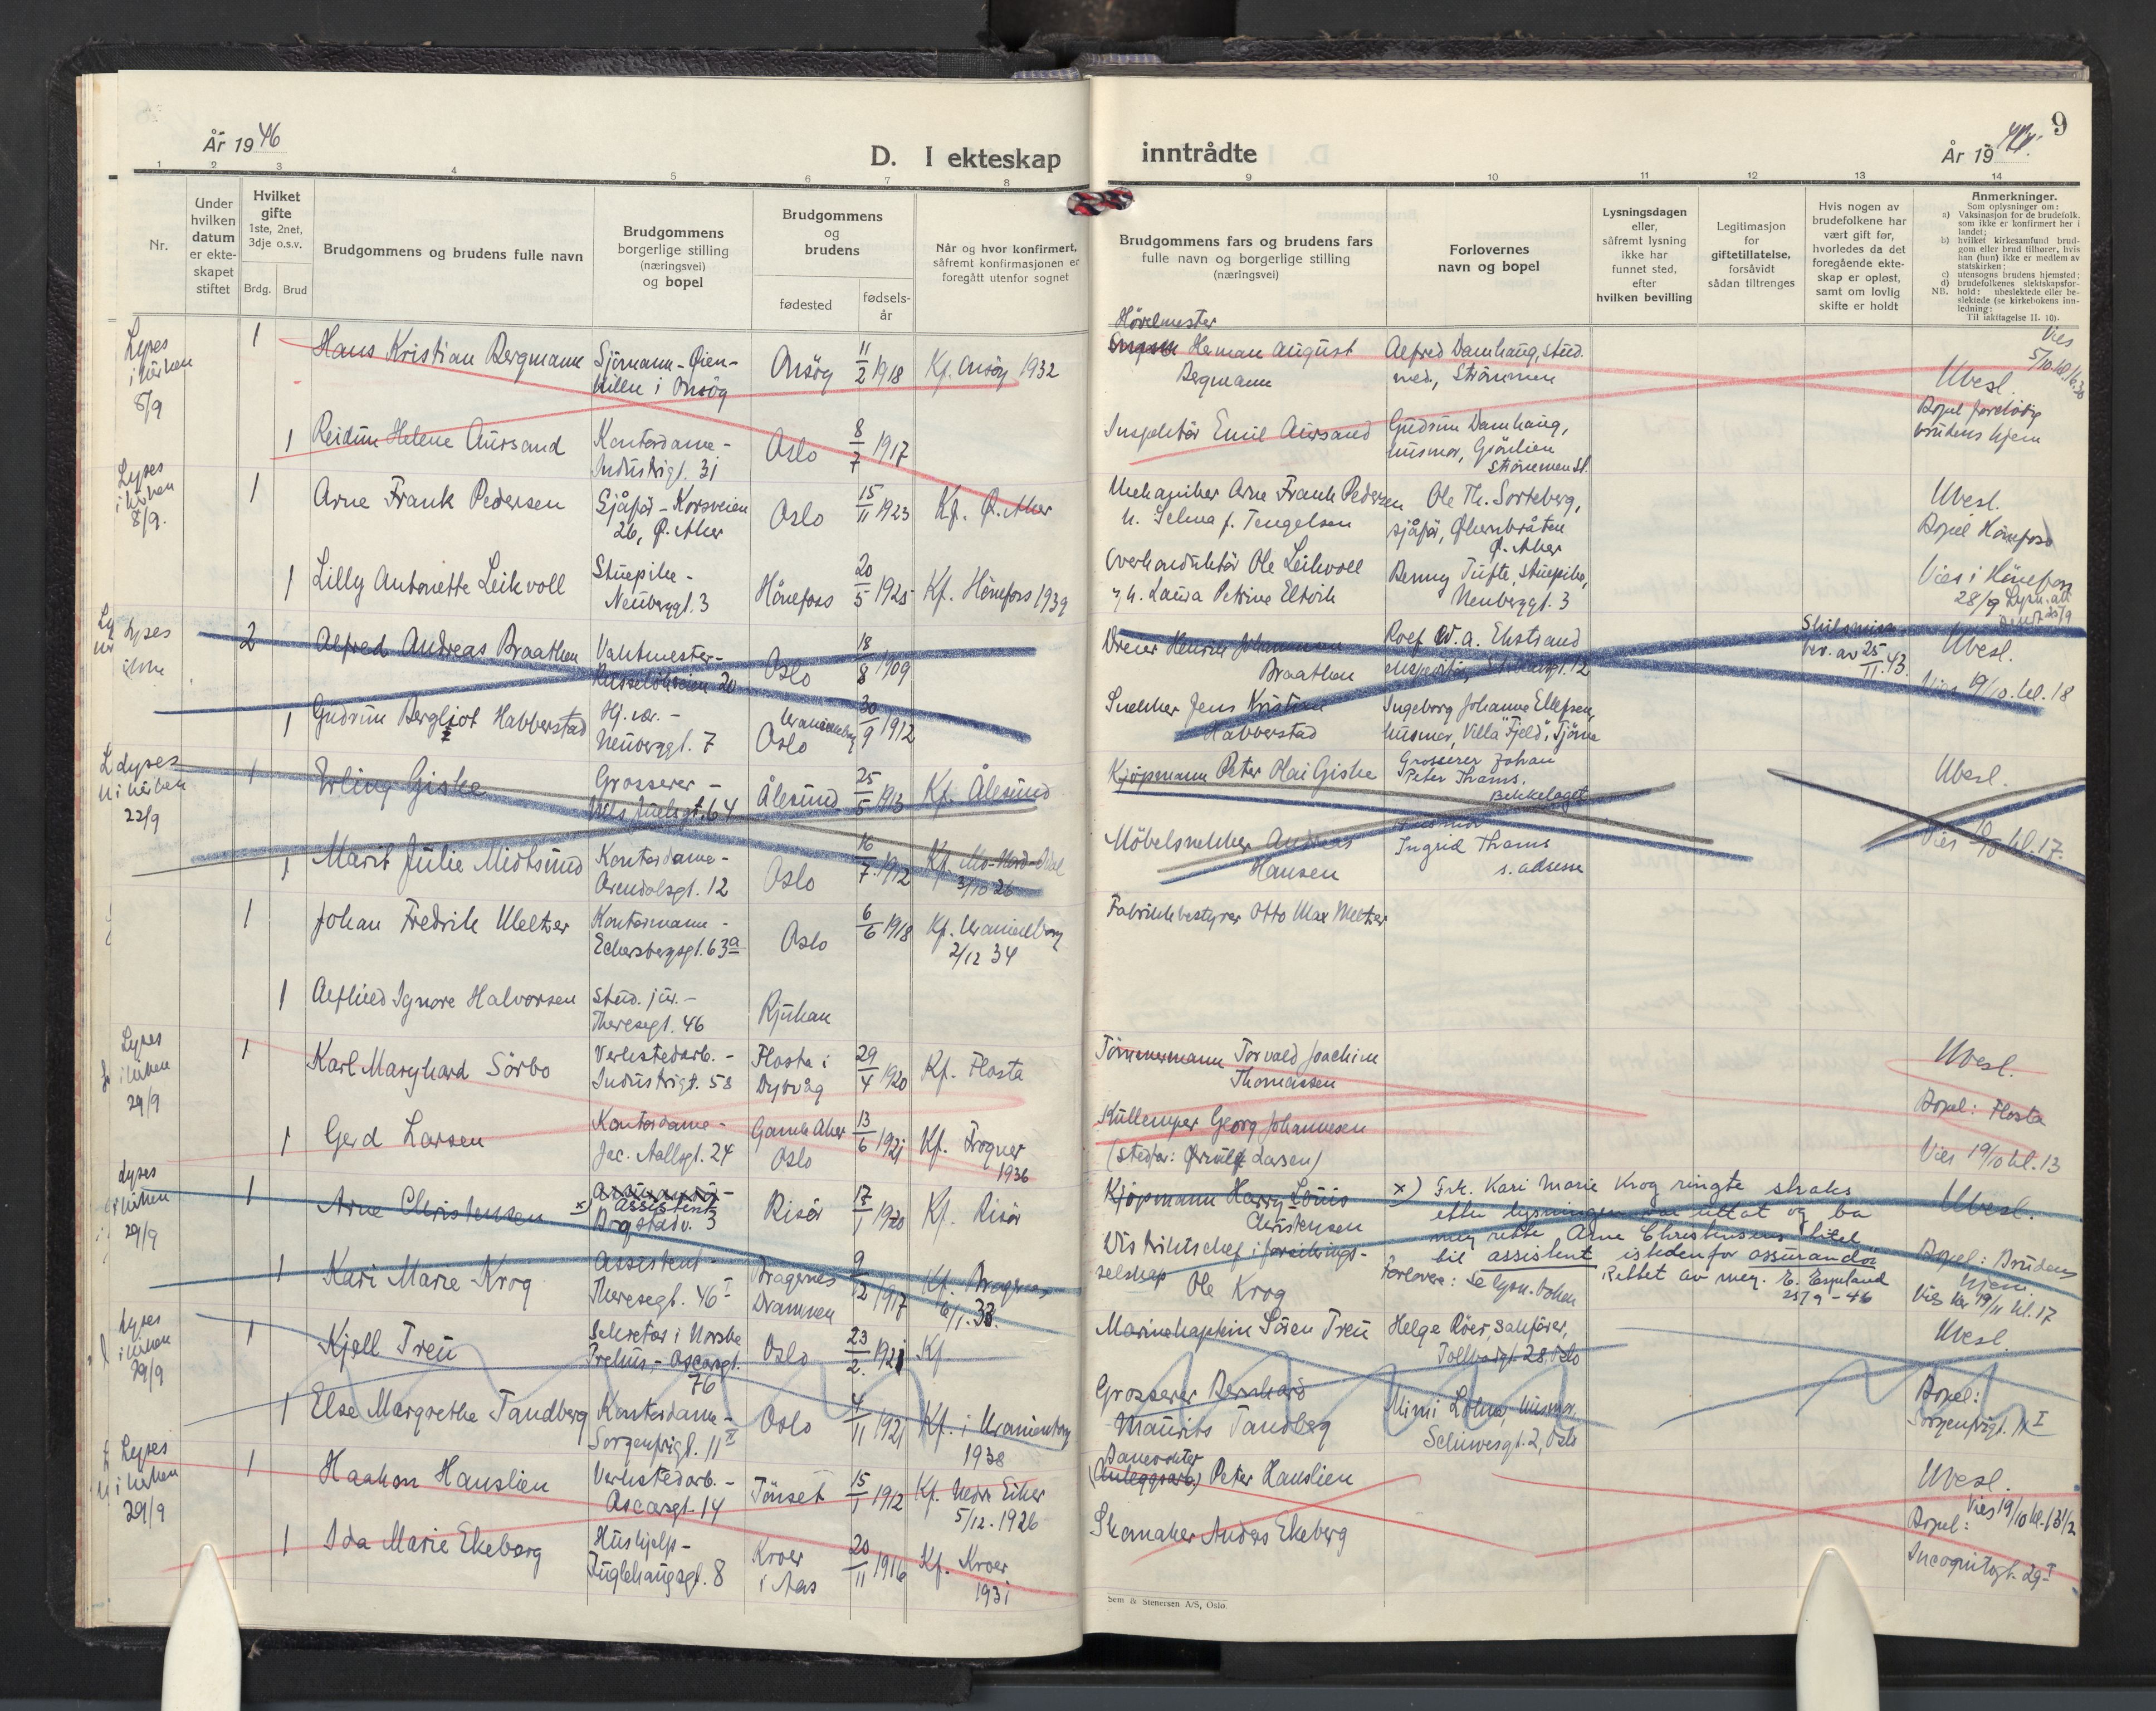 År 1946
D. I ekteskap
inntrådte
År 1946.
9
1 2 3 4 5 6 7 8 9 10 11 12 13 14
Nr.
Under
hvilken
datum
er ekte-
skapet
stiftet
Hvilket
gifte
1ste, 2net,
3dje o.s.v.
Brdg. Brud
Brudgommens og brudens fulle navn
Brudgommens
borgerlige stilling
(næringsvei)
og bopel
Brudgommens
og
brudens
fødested
fødsels-
år
Når og hvor konfirmert,
såfremt konfirmasjonen er
foregått utenfor sognet
Brudgommens fars og brudens fars
fulle navn og borgerlige stilling
(næringsvei)
Forlovernes
navn og bopel
Lysningsdagen
eller,
såfremt lysning
ikke har
funnet sted,
efter
hvilken bevilling
Legitimasjon
for
giftetillatelse,
forsåvidt
sådan tiltrenges
Hvis nogen av
brudefolkene har
vært gift før,
hvorledes da det
foregående ekte-
skap er opløst,
samt om lovlig
skifte er holdt
Anmerkninger.
Som oplysninger om:
a) Vaksinasjon for de brudefolk,
som ikke er konfirmert her i
landet;
b) hvilket kirkesamfund brud-
gom eller brud tilhører, hvis
han (hun) ikke er medlem av
statskirken;
c) utensogns brudens hjemsted;
d) brudefolkenes slektskapsfor-
NB. hold: ubeslektede eller be-
slektede (se kirkebokens inn-
ledning:
Til iakttagelse II. 10).
Lyses
i kirken
8/9
1
Hans Kristian Bergmann
Sjömann - Öien-
kilen i Onsöy
Onsöy
11/2 1918
Kf. Onsöy 1932
Hövelmester
Herman August
Bergmann
Alfred Damhaug, stud.
med., Strömmen
Vies
5/10. kl. 16.30
Ubesl.
Bopel foreløbig
brudens hjem
1
Reidun Helene Aursand
Kontordame -
Industrigt. 31
Oslo
8/7 1917
Inspektör Emil Aursand
Gudrun Damhaug,
husmor, Grönlien
Strömmen st.
Lyses
i kirken
8/9.
1
Arne Frank Pedersen
Sjåför - Korsveien
26, Ö. Aker
Oslo
15/11 1923
Kf. Ö. Aker
Mekaniker Arne Frank Pedersen
h. Selma f. Tengelsen
Ole Th. Sorteberg,
sjåför, Økernbråten
Ö. Aker
Ubesl.
Bopel Hönefoss
1
Lilly Antonette Leikvoll
Stuepike -
Neuberggt. 3
Hönefoss
20/5 1925
Kf. Hönefoss 1939
Overkonduktör Ole Leikvoll
h. Laura Petrine Eltvik
Benny Tufte, stuepike,
Neuberggt. 3
Vies i Hönefoss
28/9 Lysn.att.
sendt 25/9
Lyses
2
Alfred Andreas Braathen
Vaktmester -
Russeløkveien 20
Oslo
18/8 1909
Dreier Henrik Johannsen
Braathen
Rolf W. A. Ekstrand
ekspeditör,
Skilsmiss.
bev. av 25/11.43.
Ubesl.
Vies 19/10. kl. 18
1
Gudrun Bergliot Habberstad
Hj. vær. -
Neuberggt. 7
Uranienborg
Oslo
30/9 1912
Snekker Jens Kristian
Habberstad
Ingeborg Johanne Ellefsen,
husmor, Villa "Fjeld", Tjöme
Lyses
i kirken
22/9
1
Erling Giske
Grosserer -
Niels Juelsgt. 64
Ålesund
25/5 1913
Kf. Ålesund
Kjöpmann Peter Olai Giske
Grosserer Johan
Peter Thams,
Bekkelaget
Ubesl.
1
Marit Julie Midtsund
Kontordame -
Arendalsgt. 12
Oslo
16/7. 1912
Kf. Mo-Nord-Odal
3/10 26
Möbelsnekker Andreas
Hansen
Husmor
Ingrid Thams
s. adresse
Vies 19/10 kl. 17.
1
Johan Fredrik Meltzer
Kontormann -
Eckersbergsgt. 63a
Oslo
6/6 1918
Kf. Uranienborg
2/12 34
Fabrikkbestyrer Otto Max Meltzer
1
Halvorsen
Stud. jur. -
Theresegt. 46
Rjukan
Lyses
i kirken
29/9
1
Karl Maryhard Sörbo
Verkstedarb. -
Industrigt. 58
Flosta i
Dypvåg
29/4 1920
Kf. Flosta
Tömmermann Torvald Joachim
Thomassen
Ubesl.
Bopel: Flosta
1
Gerd Larsen
Kontordame -
Jac. Aallsgt. 24
Gamle Aker
Oslo
13/6 1921
Kf. Frogner
1936
Kullemper Georg Johannesen
(stedfar: Ørnulf Larsen)
Vies 19/10 kl. 13
Lyses
i kirken
29/9
1
Arne Christensen
x) Assistent
Bogstadv. 3
Risör
17/1 1920
Kf. Risör
Kjöpmann Harry Louis
Christensen
x) Frk. Kari Marie Krog ringte straks
etter lysningen var uttatt og ba
meg rette Arne Christensens tittel
til assistent istedenfor assurandör
Rettet av meg. E. Espeland
25/9 - 46
Ubesl.
1
Kari Marie Krog
Assistent -
Theresegt. 46 I
Bragernes
Drammen
9/12 1917
Kf. Bragernes
6/1. 33.
Distriktschef i forsikrings-
selskap Ole Krog
Forlovere: Se lysn. boken
Bopel: Brudens
hjem
Vies her 19/11 kl. 17
Lyses
i kirken
29/9
1
Kjell Treu
Sekretær i Norske
Prehus, - Oscarsgt.
76
Oslo
23/2. 1921
Kf.
Marinekaptein Sören Treu
Helge Röer, sakförer,
Tollbodgt. 28, Oslo
Ubesl.
1
Else Margrethe Tandberg
Kontordame -
Sorgenfrigt. 11 II
Oslo
4/11 1921
Kf. i Uranienborg
1938
Grosserer Bernhard
Mauritz Tandberg
Mimi Lölma, husmor,
Schivesgt. 2, Oslo
Bopel:
Sorgenfrigt. 11 I
Lyses
i kirken
29/9
1
Haakon Hauslien
Verkstedarb. -
Oscarsgt. 14
Tönset
15/1 1912
Kf. Nedre Eiker
5/12. 1926
Banevokter
(Anleggsarb.) Peter Hauslien
Ubesl.
Vies 19/10 kl. 13 1/2
1
Ida Marie Ekeberg
Hushjelp -
Fuglehaugsgt. 8
Kroer
i Aas
20/11 1916
Kf. Kroer
1931
Skomaker Anders Ekeberg
Bopel:
Incognitogt. 29 I
Sem & Stenersen A/S, Oslo.